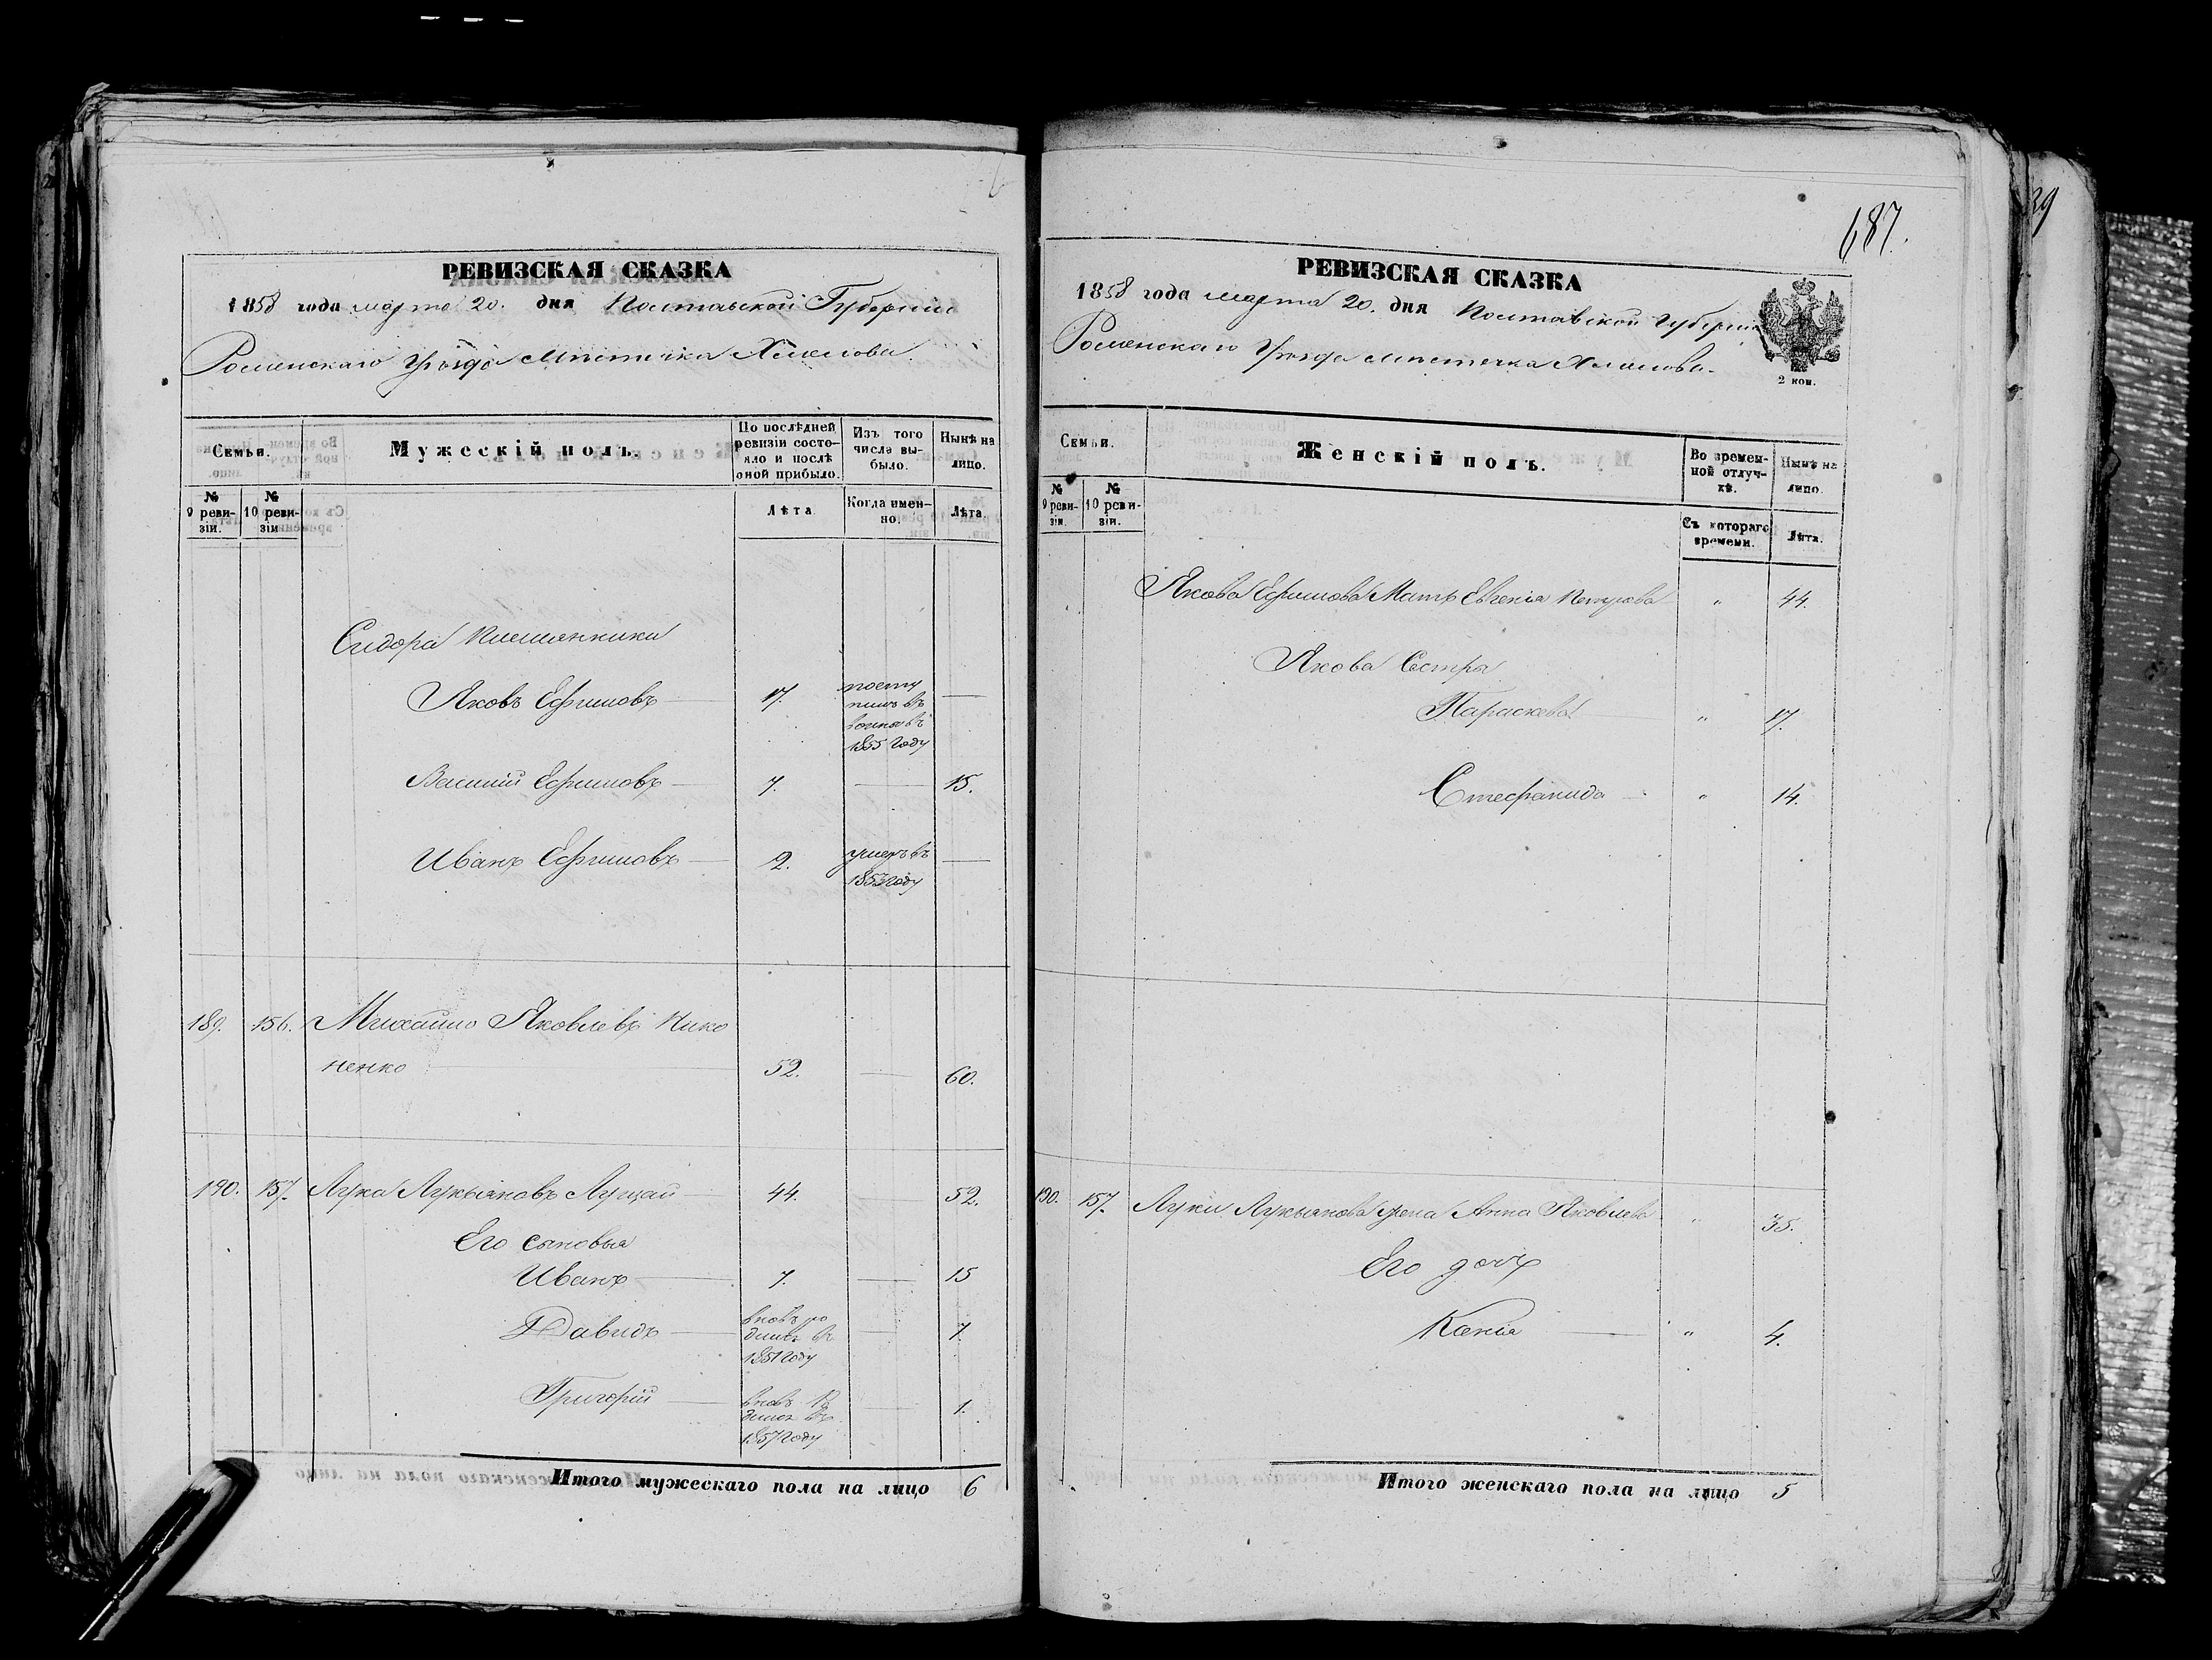 РЕВИЗСКАЯ СКАЗКА
1858 года марта 20. дня Полтавской Губернии
Роменскаго Уѣзда Мѣстечка Хмелова.
Семьи.
Мужескій полъ.
По послѣдней ревизіи состояло и послѣ оной прибыло.
Изъ того числа выбыло.
Нынѣ на лицо.
№ 9 ревизіи.
№ 10 ревизіи.
Лѣта
Когда именно.
Лѣта.
Сидора племянники
Яковъ Ефимовъ 17. поступилъ въ воина въ 1855 году —
Василий Ефимовъ 7. — 15.
Иванъ Ефимовъ 2. умеръ въ 1853 году —
189. 156. Михайло Яковлевъ Нико
ненко 52. — 60.
190. 157. Лука Лукьяновъ Лущай 44. — 52.
Его сыновья
Иванъ 7. — 15
Давидъ вновь родился въ 1851 году — 7.
Григорій вновь родился въ 1857 году — 1.
Итого мужескаго пола на лицо 6
687.
39
РЕВИЗСКАЯ СКАЗКА
1858 года марта 20. дня Полтавской Губерніи
Роменскаго Уѣзда мѣстечка Хмелова.
2 коп.
Семьи.
Женскій полъ.
Во временной отлучкѣ.
Нынѣ на лицо.
№ 9 ревизіи.
№ 10 ревизіи.
Съ котораго времени.
Лѣта.
Якова Ефимова Мать Евгенія Петрова " 44.
Якова Сестры
Параскева " 17.
Стефанида — " 14.
190. 157. Луки Лукьянова жена Анна Яковлева " 35.
Его дочь
Ксенія — " 4.
Итого женскаго пола на лицо 5